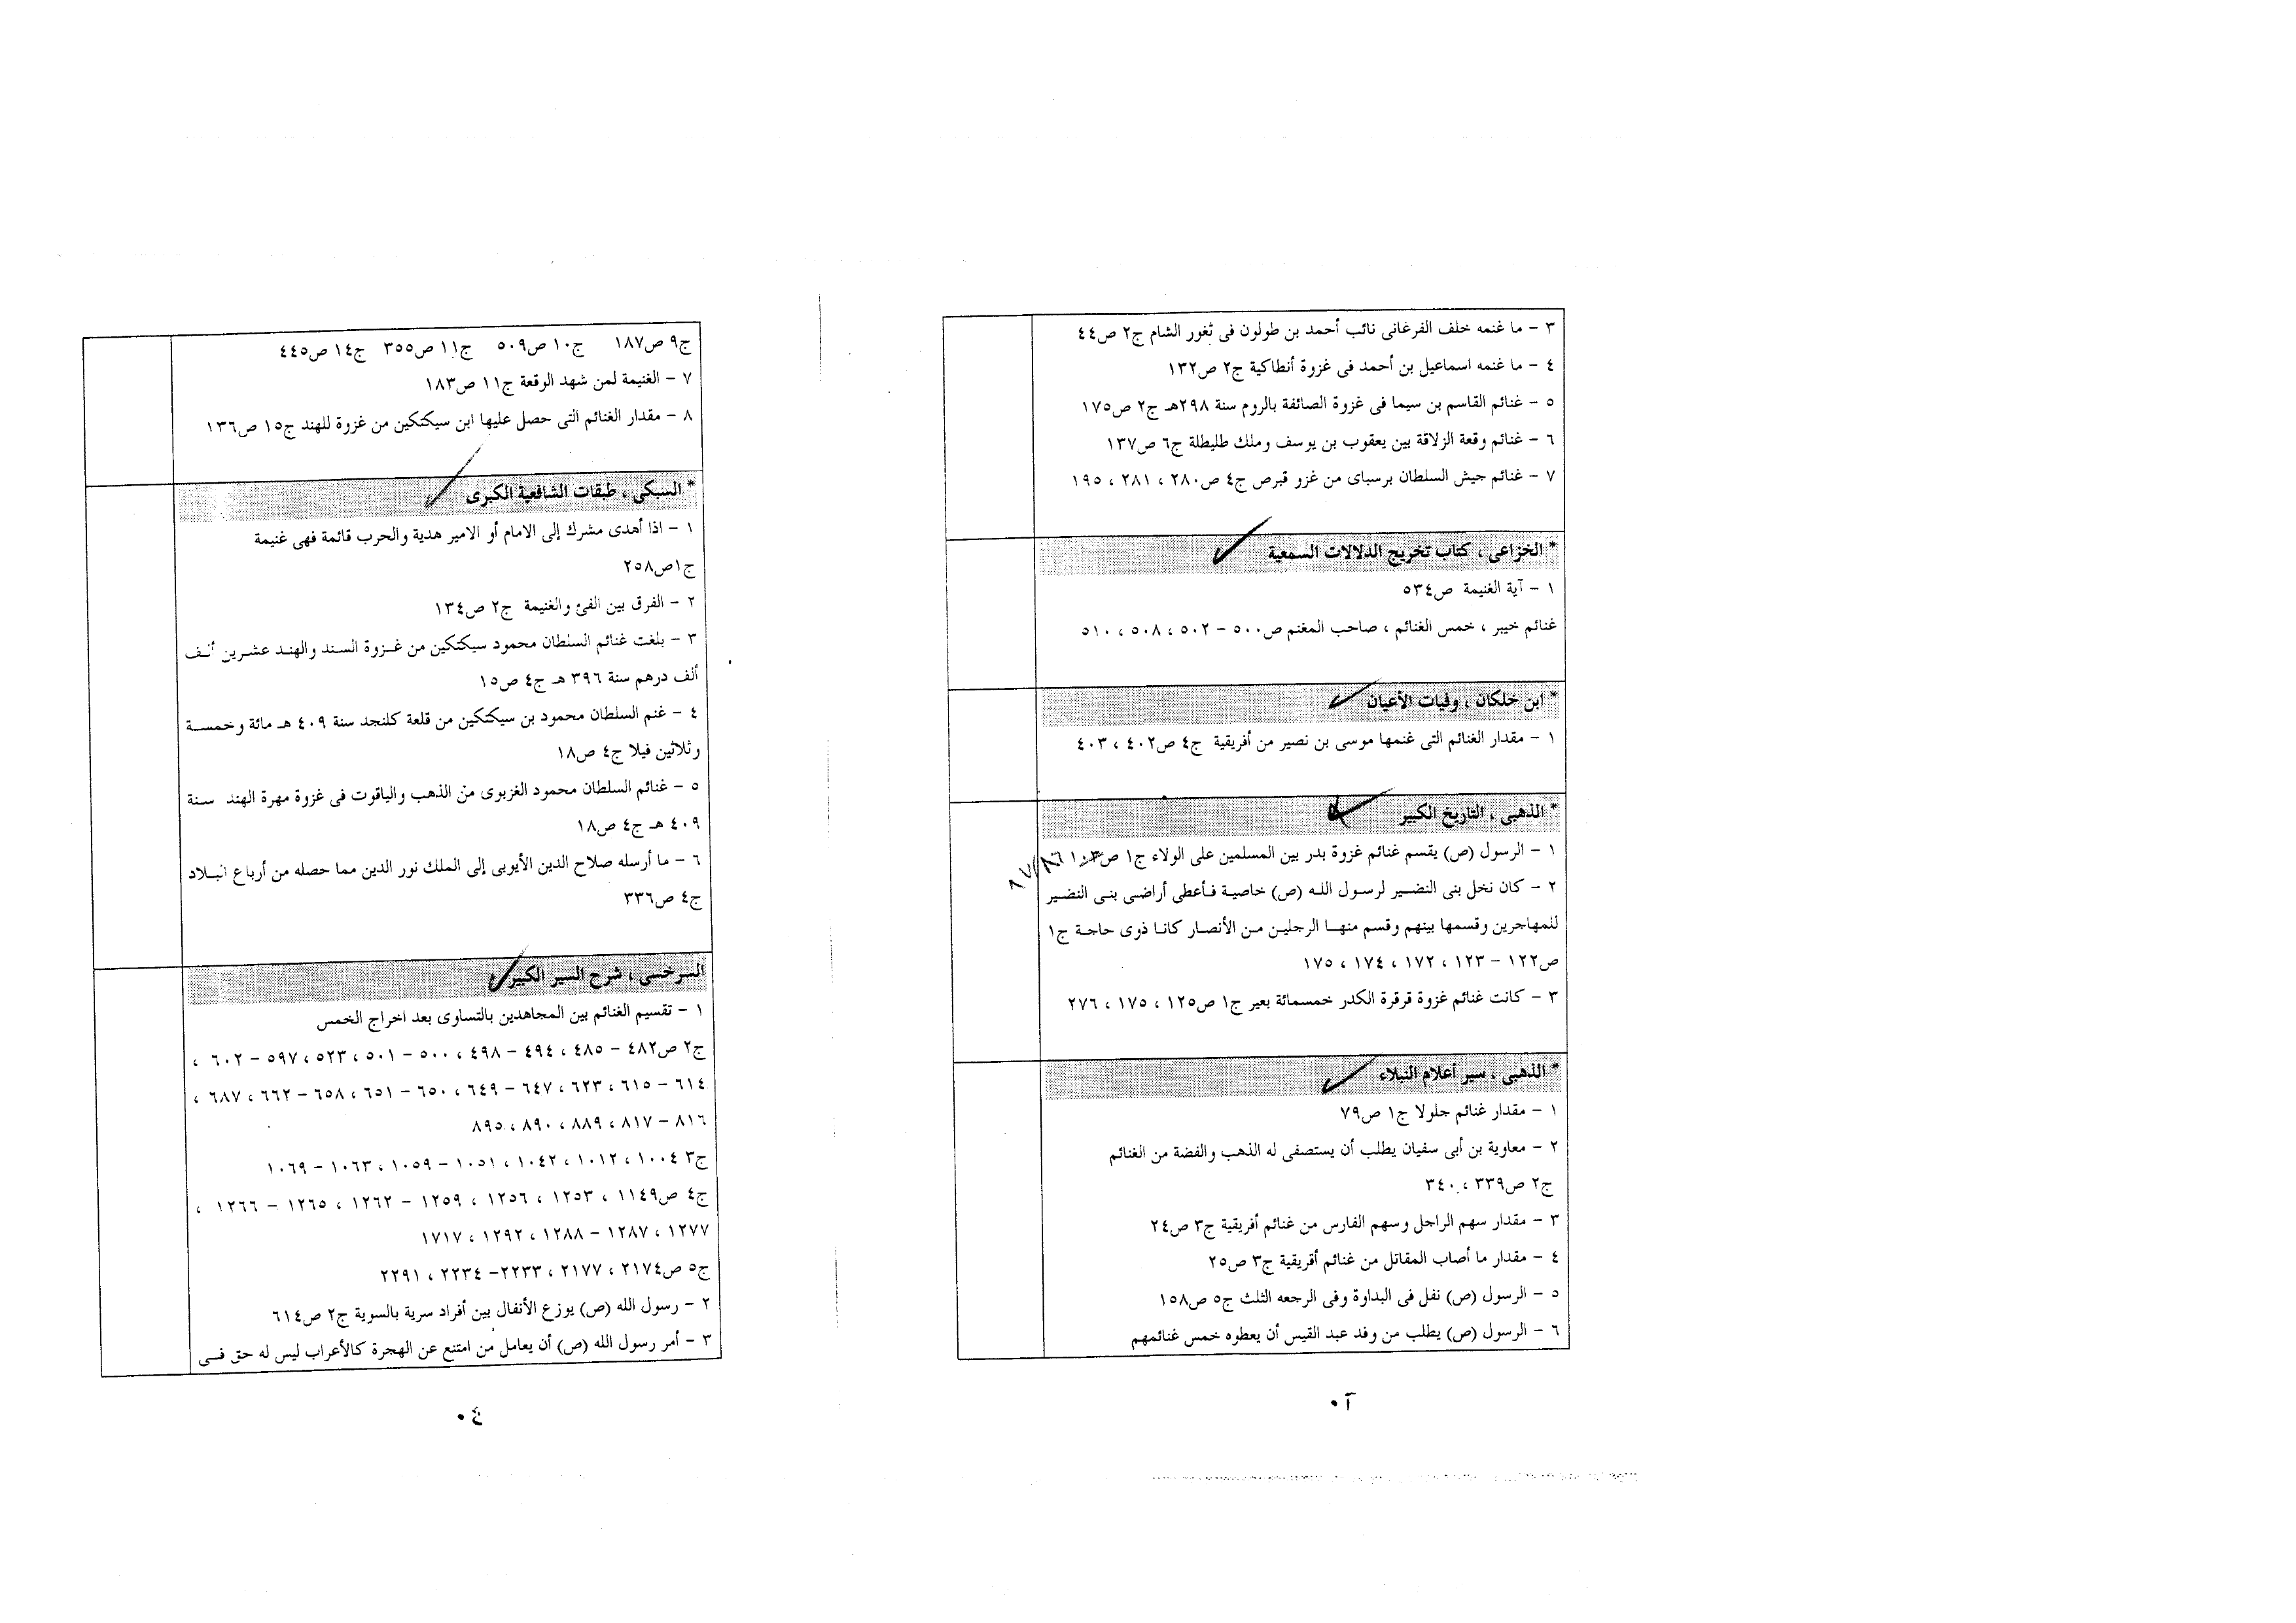 ٣ - ما غنمه خلف الفرغانى نائب أحمد بن طولون فى ثغور الشام ج٢ ص٤٤
٤ - ما غنمه اسماعيل بن أحمد فى غزوة أنطاكية ج٢ ص١٣٢
٥ - غنائم القاسم بن سيما فى غزوة الصائفة بالروم سنة ٢٩٨هـ ج٢ ص١٧٥
٦ - غنائم وقعة الزلاقة بين يعقوب بن يوسف وملك طليطلة ج٦ ص١٣٧
٧ - غنائم جيش السلطان برسباى من غزو قبرص ج٤ ص٢٨٠ ، ٢٨١ ، ١٩٥
* الخزاعى ، كتاب تخريج الدلالات السمعية
١ - آية الغنيمة ص٥٣٤
غنائم خيبر ، خمس الغنائم ، صاحب المغنم ص٥٠٠ - ٥٠٢ ، ٥٠٨ ، ٥١٠
* ابن خلكان ، وفيات الأعيان
١ - مقدار الغنائم التى غنمها موسى بن نصير من أفريقية ج٤ ص٤٠٢ ، ٤٠٣
* الذهبى ، التاريخ الكبير
١ - الرسول (ص) يقسم غنائم غزوة بدر بين المسلمين على الولاء ج١
٢ - كان نخل بنى النضير لرسول الله (ص) خاصية فأعطى أراضى بنى النضير
للمهاجرين وقسمها بينهم وقسم منها الرجلين من الأنصار كانا ذوى حاجة ج١
ص١٢٢ - ١٢٣ ، ١٧٢ ، ١٧٤ ، ١٧٥
٣ - كانت غنائم غزوة قرقرة الكدر خمسمائة بعير ج١ ص١٢٥ ، ١٧٥ ، ٢٧٦
* الذهبى ، سير أعلام النبلاء
١ - مقدار غنائم جلولا ج١ ص٧٩
٢ - معاوية بن أبى سفيان يطلب أن يستصفى له الذهب والفضة من الغنائم
ج٢ ص٣٣٩ ، ٣٤٠
٣ - مقدار سهم الراجل وسهم الفارس من غنائم أفريقية ج٣ ص٢٤
٤ - مقدار ما أصاب المقاتل من غنائم أقريقية ج٣ ص٢٥
٥ - الرسول (ص) نفل فى البداوة وفى الرجعه الثلث ج٥ ص١٥٨
٦ - الرسول (ص) يطلب من وفد عبد القيس أن يعطوه خمس غنائمهم
ج٩ ص١٨٧ ج١٠ ص٥٠٩ ج١١ ص٣٥٥ ج١٤ ص٤٤٥
٧ - الغنيمة لمن شهد الوقعة ج١١ ص١٨٣
٨ - مقدار الغنائم التى حصل عليها ابن سيكتكين من غزوة للهند ج١٥ ص١٣٦
* السبكى ، طبقات الشافعية الكبرى
١ - اذا أهدى مشرك إلى الامام أو الامير هدية والحرب قائمة فهى غنيمة
ج١ص٢٥٨
٢ - الفرق بين الفئ والغنيمة ج٢ ص١٣٤
٣ - بلغت غنائم السلطان محمود سيكتكين من غزوة السند والهند عشرين ألف
ألف درهم سنة ٣٩٦ هـ ج٤ ص١٥
٤ - غنم السلطان محمود بن سيكتكين من قلعة كلنجد سنة ٤٠٩ هـ مائة وخمسة
وثلاثين فيلا ج٤ ص١٨
٥ - غنائم السلطان محمود الغزبوى من الذهب والياقوت فى غزوة مهرة الهند سنة
٤٠٩ هـ ج٤ ص١٨
٦ - ما أرسله صلاح الدين الأيوبى إلى الملك نور الدين مما حصله من أرباع البلاد
ج٤ ص٣٣٦
السرخسى ، شرح السير الكبير
١ - تقسيم الغنائم بين المجاهدين بالتساوى بعد اخراج الخمس
ج٢ ص٤٨٢ - ٤٨٥ ، ٤٩٤ - ٤٩٨ ، ٥٠٠ - ٥٠١ ، ٥٢٣ ، ٥٩٧ - ٦٠٢ ،
٦١٤ - ٦١٥ ، ٦٢٣ ، ٦٤٧ - ٦٤٩ ، ٦٥٠ - ٦٥١ ، ٦٥٨ - ٦٦٢ ، ٦٨٧ ،
٨١٦ - ٨١٧ ، ٨٨٩ ، ٨٩٠ ، ٨٩٥
ج٣ ١٠٠٤ ، ١٠١٢ ، ١٠٤٢ ، ١٠٥١ - ١٠٥٩ ، ١٠٦٣ - ١٠٦٩
ج٤ ص١١٤٩ ، ١٢٥٣ ، ١٢٥٦ ، ١٢٥٩ - ١٢٦٢ ، ١٢٦٥ - ١٢٦٦ ،
١٢٧٧ ، ١٢٨٧ - ١٢٨٨ ، ١٢٩٢ ، ١٧١٧
ج٥ ص٢١٧٤ ، ٢١٧٧ ، ٢٢٣٣- ٢٢٣٤ ، ٢٢٩١
٢ - رسول الله (ص) يوزع الأنفال بين أفراد سرية بالسوية ج٢ ص٦١٤
٣ - أمر رسول الله (ص) أن يعامل من امتنع عن الهجرة كالأعراب ليس له حق فى